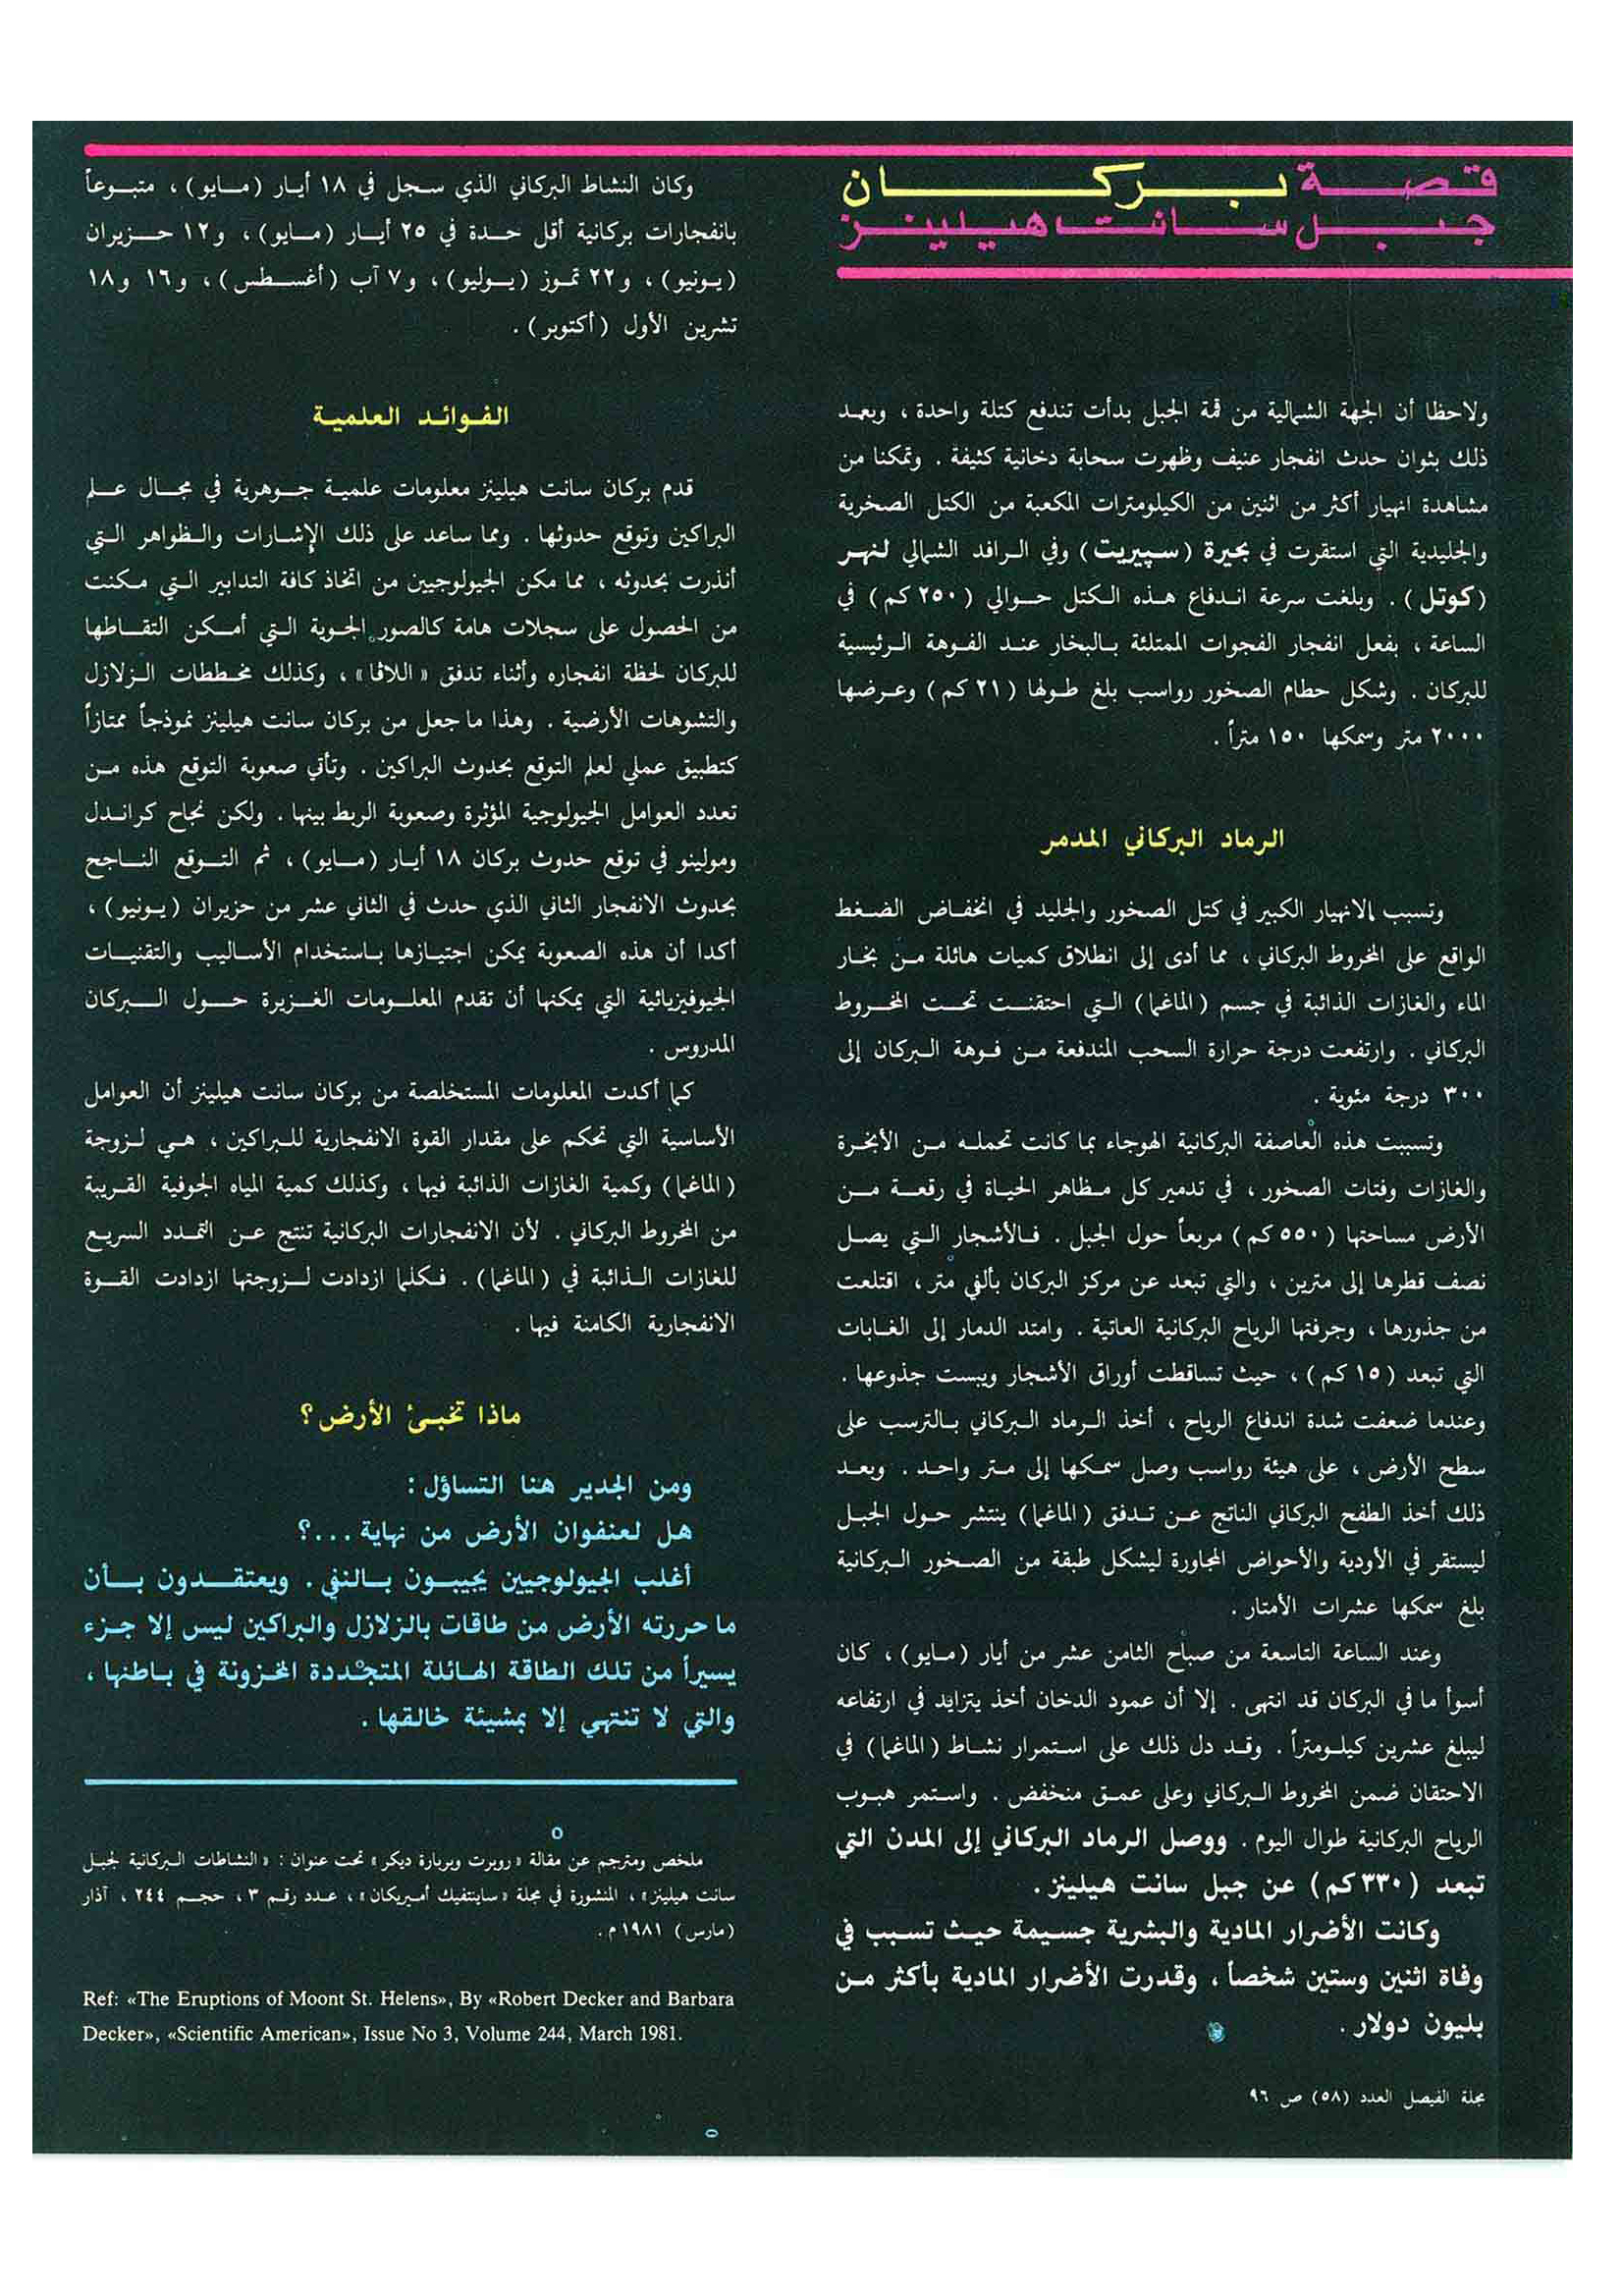 قصة بركان
جبل سانت هيلينز
ولاحظا أن الجهة الشمالية من قمة الجبل بدأت تندفع كتلة واحدة ، وبعد
ذلك بثوان حدث انفجار عنيف وظهرت سحابة دخانية كثيفة . وتمكنا من
مشاهدة انهيار أكثر من اثنين من الكيلومترات المكعبة من الكتل الصخرية
والجليدية التي استقرت في بحيرة (سبيريت) وفي الرافد الشمالي لنهر
(كوتل) . وبلغت سرعة اندفاع هذه الكتل حوالي (٢٥٠ كم) في
الساعة ، بفعل انفجار الفجوات الممتلئة بالبخار عند الفوهة الرئيسية
للبركان . وشكل حطام الصخور رواسب بلغ طولها (٢١ كم) وعرضها
٢٠٠٠ متر وسمكها ١٥٠ متراً .
الرماد البركاني المدمر
وتسبب الانهيار الكبير في كتل الصخور والجليد في انخفاض الضغط
الواقع على المخروط البركاني ، مما أدى إلى انطلاق كميات هائلة من بخار
الماء والغازات الذائبة في جسم (الماغما) التي احتقنت تحت المخروط
البركاني . وارتفعت درجة حرارة السحب المندفعة من فوهة البركان إلى
٣٠٠ درجة مئوية .
وتسببت هذه العاصفة البركانية الهوجاء بما كانت تحمله من الأبخرة
والغازات وفتات الصخور ، في تدمير كل مظاهر الحياة في رقعة من
الأرض مساحتها (٥٥٠ كم) مربعاً حول الجبل . فالأشجار التي يصل
نصف قطرها إلى مترين ، والتي تبعد عن مركز البركان بألفي متر ، اقتلعت
من جذورها ، وجرفتها الرياح البركانية العاتية . وامتد الدمار إلى الغابات
التي تبعد (١٥ كم) ، حيث تساقطت أوراق الأشجار ويبست جذوعها .
وعندما ضعفت شدة اندفاع الرياح ، أخذ الرماد البركاني بالترسب على
سطح الأرض ، على هيئة رواسب وصل سمكها إلى متر واحد . وبعد
ذلك أخذ الطفح البركاني الناتج عن تدفق (الماغما) ينتشر حول الجبل
ليستقر في الأودية والأحواض المجاورة ليشكل طبقة من الصخور البركانية
بلغ سمكها عشرات الأمتار .
وعند الساعة التاسعة من صباح الثامن عشر من أيار (مايو) ، كان
أسوأ ما في البركان قد انتهى . إلا أن عمود الدخان أخذ يتزايد في ارتفاعه
ليبلغ عشرين كيلومتراً . وقد دل ذلك على استمرار نشاط (الماغما) في
الاحتقان ضمن المخروط البركاني وعلى عمق منخفض . واستمر هبوب
الرياح البركانية طوال اليوم . ووصل الرماد البركاني إلى المدن التي
تبعد (٣٣٠ كم) عن جبل سانت هيلينز .
وكانت الأضرار المادية والبشرية جسيمة حيث تسبب في
وفاة اثنين وستين شخصاً ، وقدرت الأضرار المادية بأكثر من
بليون دولار .
مجلة الفيصل العدد (٥٨) ص ٩٦
وكان النشاط البركاني الذي سجل في ١٨ أيار (مايو) ، متبوعاً
بانفجارات بركانية أقل حدة في ٢٥ أيار (مايو) ، و١٢ حزيران
(يونيو) ، و٢٢ تموز (يوليو) ، و٧ آب (أغسطس) ، و١٦ و١٨
تشرين الأول (أكتوبر) .
الفوائد العلمية
قدم بركان سانت هيلينز معلومات علمية جوهرية في مجال علم
البراكين وتوقع حدوثها . ومما ساعد على ذلك الإشارات والظواهر التي
أنذرت بحدوثه ، مما مكن الجيولوجيين من اتخاذ كافة التدابير التي مكنت
من الحصول على سجلات هامة كالصور الجوية التي أمكن التقاطها
للبركان لحظة انفجاره وأثناء تدفق «اللاڤا» ، وكذلك مخططات الزلازل
والتشوهات الأرضية . وهذا ما جعل من بركان سانت هيلينز نموذجاً ممتازاً
كتطبيق عملي لعلم التوقع بحدوث البراكين . وتأتي صعوبة التوقع هذه من
تعدد العوامل الجيولوجية المؤثرة وصعوبة الربط بينها . ولكن نجاح كراندل
ومولينو في توقع حدوث بركان ١٨ أيار (مايو) ، ثم التوقع الناجح
بحدوث الانفجار الثاني الذي حدث في الثاني عشر من حزيران (يونيو) ،
أكدا أن هذه الصعوبة يمكن اجتيازها باستخدام الأساليب والتقنيات
الجيوفيزيائية التي يمكنها أن تقدم المعلومات الغزيرة حول البركان
المدروس .
كما أكدت المعلومات المستخلصة من بركان سانت هيلينز أن العوامل
الأساسية التي تحكم على مقدار القوة الانفجارية للبراكين ، هي لزوجة
(الماغما) وكمية الغازات الذائبة فيها ، وكذلك كمية المياه الجوفية القريبة
من المخروط البركاني . لأن الانفجارات البركانية تنتج عن التمدد السريع
للغازات الذائبة في (الماغما) . فكلما ازدادت لزوجتها ازدادت القوة
الانفجارية الكامنة فيها .
ماذا تخبئ الأرض؟
ومن الجدير هنا التساؤل :
هل لعنفوان الأرض من نهاية ...؟
أغلب الجيولوجيين يجيبون بالنفي . ويعتقدون بأن
ما حررته الأرض من طاقات بالزلازل والبراكين ليس إلا جزء
يسيراً من تلك الطاقة الهائلة المتجددة المخزونة في باطنها ،
والتي لا تنتهي إلا بمشيئة خالقها .
ملخص ومترجم عن مقالة «روبرت وبربارة ديكر» تحت عنوان : «النشاطات البركانية لجبل
سانت هيلينز» ، المنشورة في مجلة «ساينتفيك أمیریکان» ، عدد رقم ٣ ، حجم ٢٤٤ ، آذار
(مارس) ١٩٨١م .
Ref: «The Eruptions of Moont St. Helens», By «Robert Decker and Barbara
Decker», «Scientific American», Issue No 3, Volume 244, March 1981.